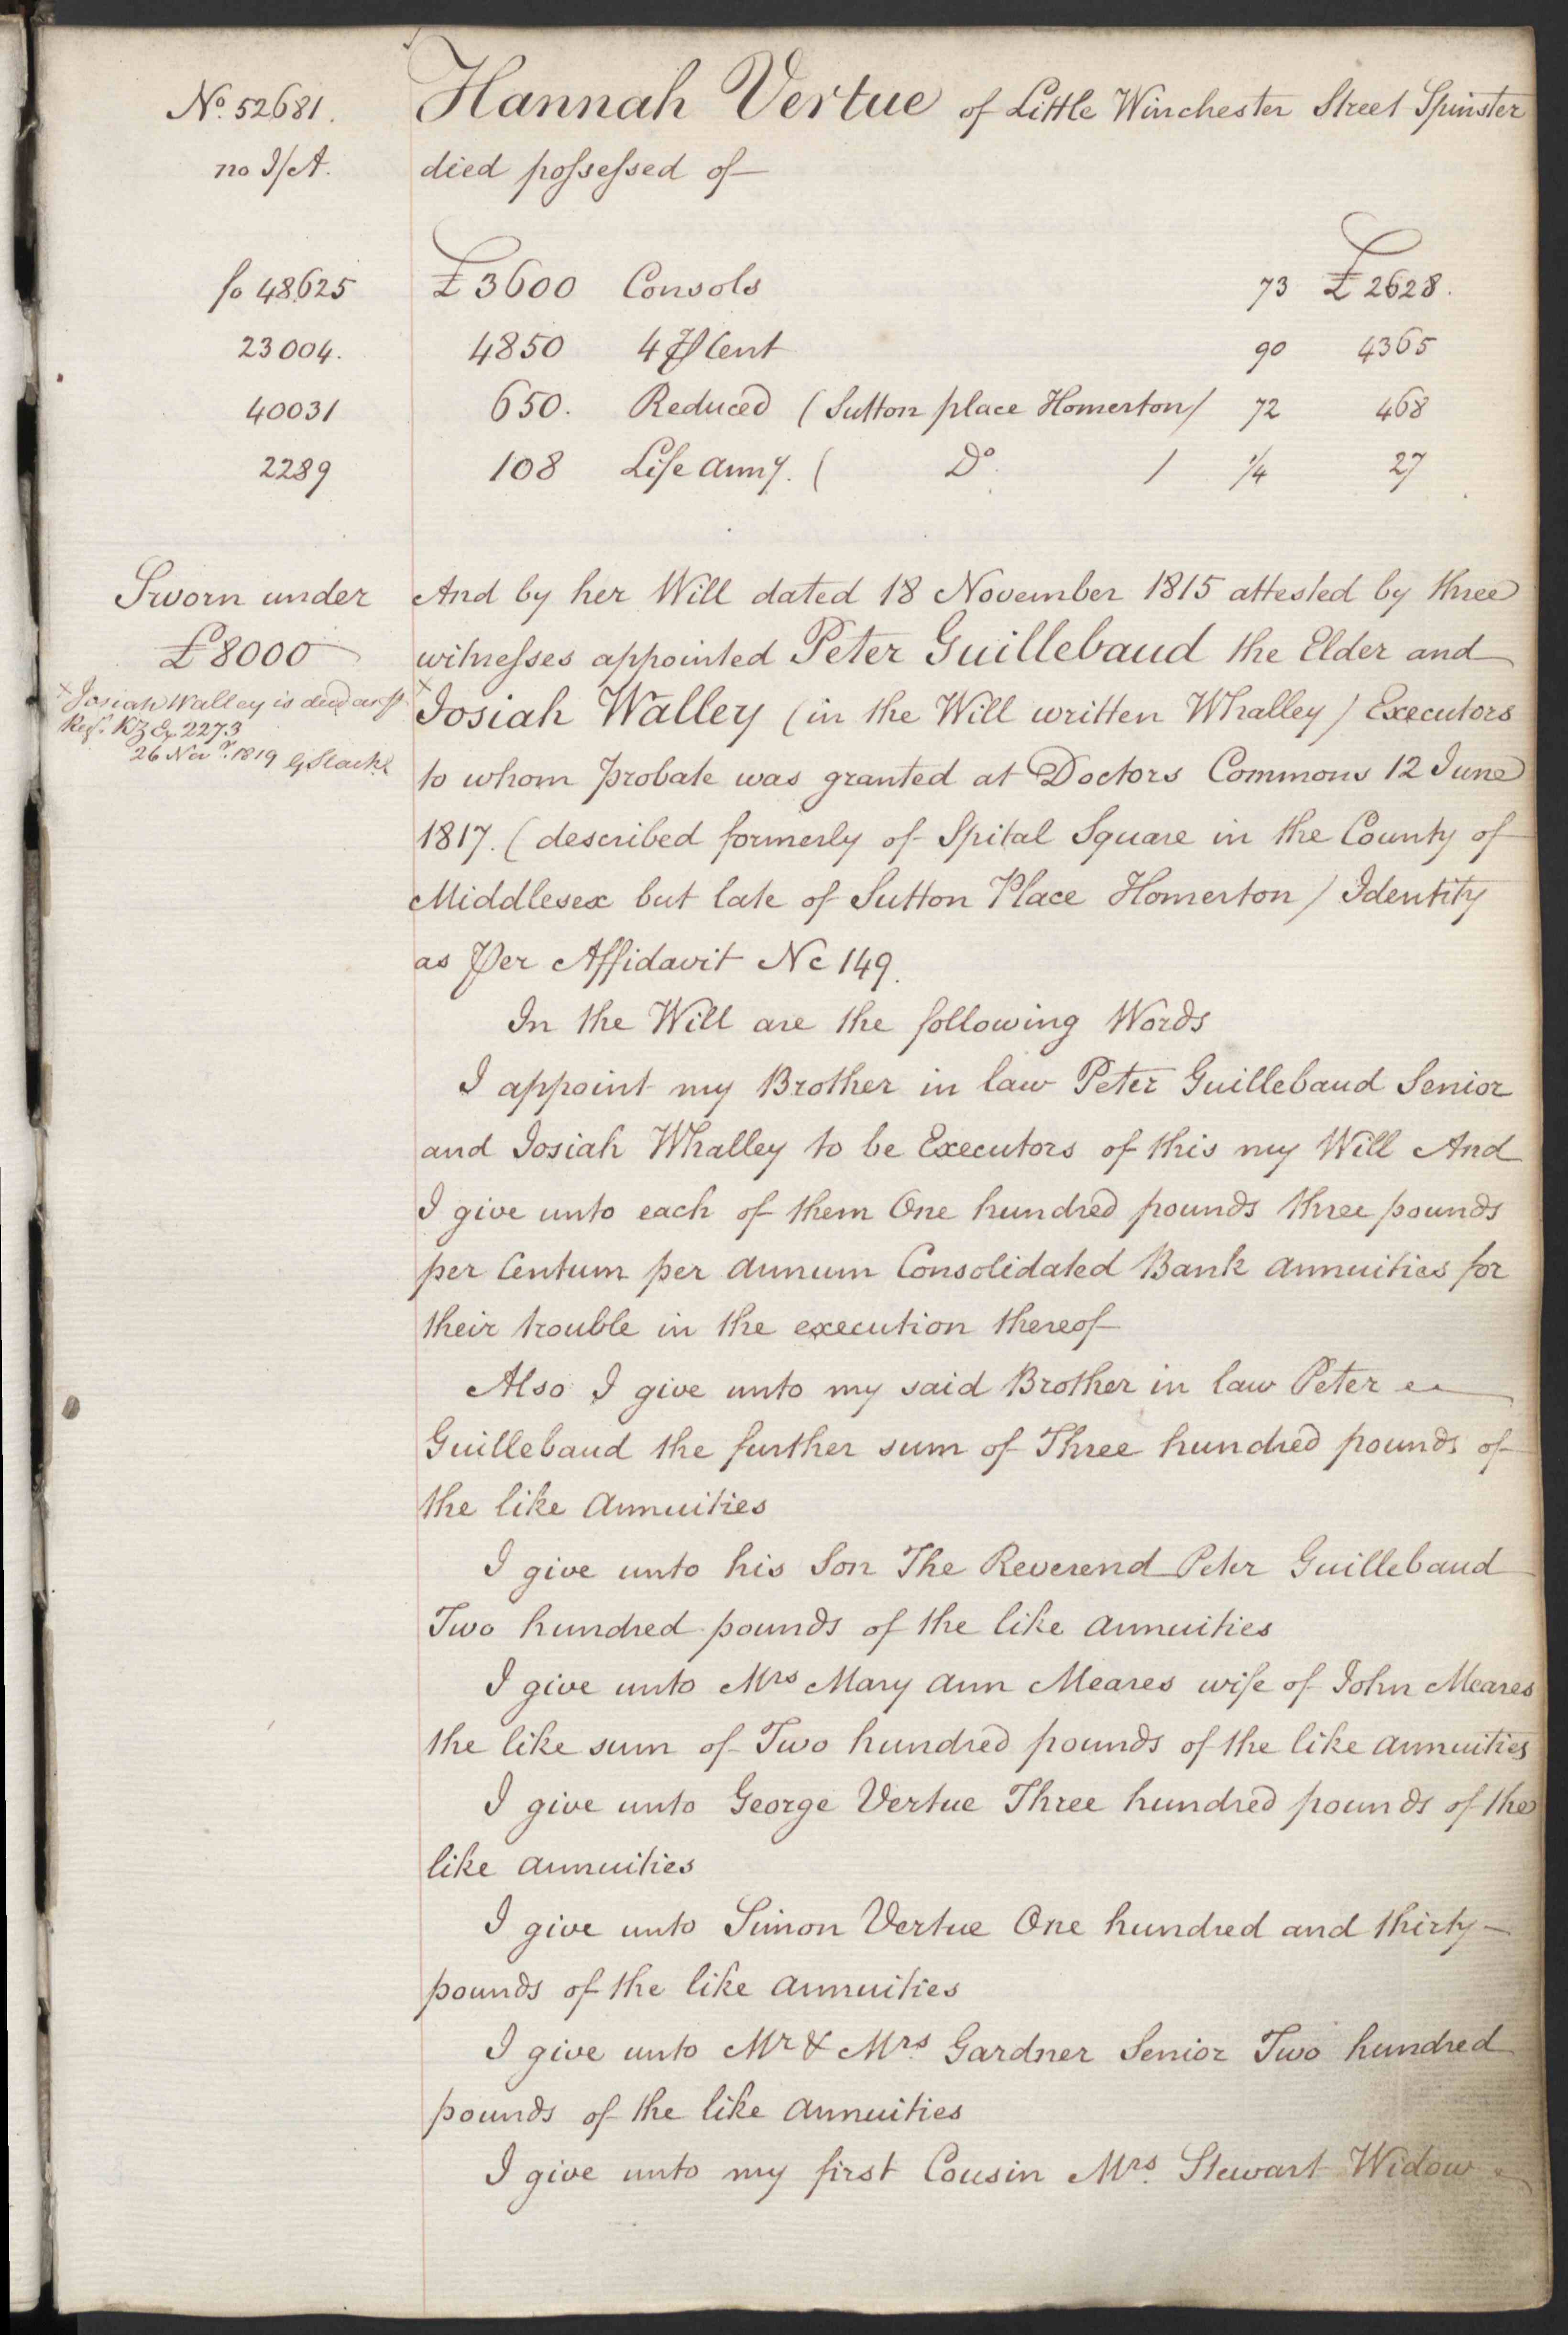 No. 52681. Hannah Vertue of Little Winchester Street Spinster
no I/A. died possessed of
fo 48625 £3600 Consols 73 £2628.
23004. 4850 4 ⅌ Cent 90 4365
40031 650. Reduced (Sutton place Homerton/ 72 468
2289 108 Life anny. ( Do. / 1/4 27
Sworn under
£8000
x Josiah Walley is decd as ⅌
Regr. KZ 2273
26 Novr. 1819 G Slack
And by her Will dated 18 November 1815 attested by three
witnesses appointed Peter Guillebaud the Elder and
x Josiah Walley (in the Will written Whalley) Executors
to whom probate was granted at Doctors Commons 12 June
1817. (described formerly of Spital Square in the County of
Middlesex but late of Sutton Place Homerton) Identity
as ⅌er Affidavit No 149.
In the Will are the following Words
I appoint my Brother in law Peter Guillebaud Senior
and Josiah Whalley to be Executors of this my Will And
I give unto each of them One hundred pounds three pounds
per Centum per annum Consolidated Bank annuities for
their trouble in the execution thereof
Also I give unto my said Brother in law Peter
Guillebaud the further sum of Three hundred pounds of
the like annuities
I give unto his Son The Reverend Peter Guillebaud
Two hundred pounds of the like annuities
I give unto Mrs Mary Ann Meares wife of John Meares
the like sum of Two hundred pounds of the like annuities
I give unto George Vertue Three hundred pounds of the
like annuities
I give unto Simon Vertue One hundred and thirty
pounds of the like annuities
I give unto Mr & Mrs. Gardner Senior Two hundred
pounds of the like annuities
I give unto my first Cousin Mrs. Stewart Widow